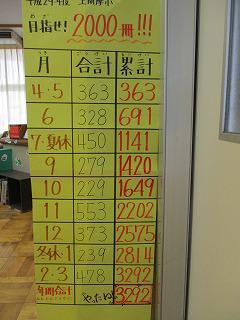 平成29年度 上関摩小
目指せ! 2000冊!!!
月 合計 累計
4・5 363 363
6 328 691
7・夏休 450 1141
9 279 1420
10 229 1649
11 553 2202
12 373 2575
冬休・1 239 2814
2・3 478 3292
年間合計 やったね! 3292